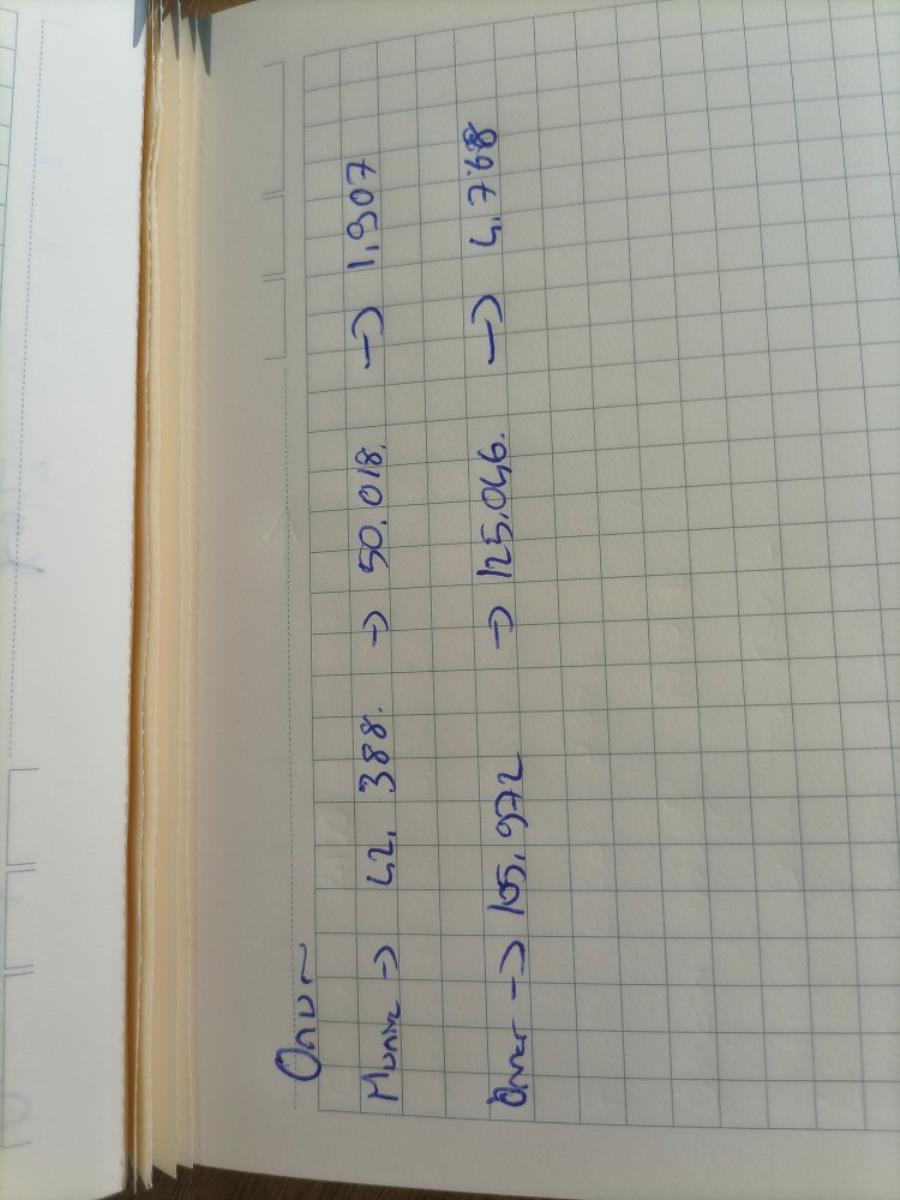 Onur
Munir → 42,388. → 50.018. → 1,907
Ömer → 105,972 → 125.046. → 4,768